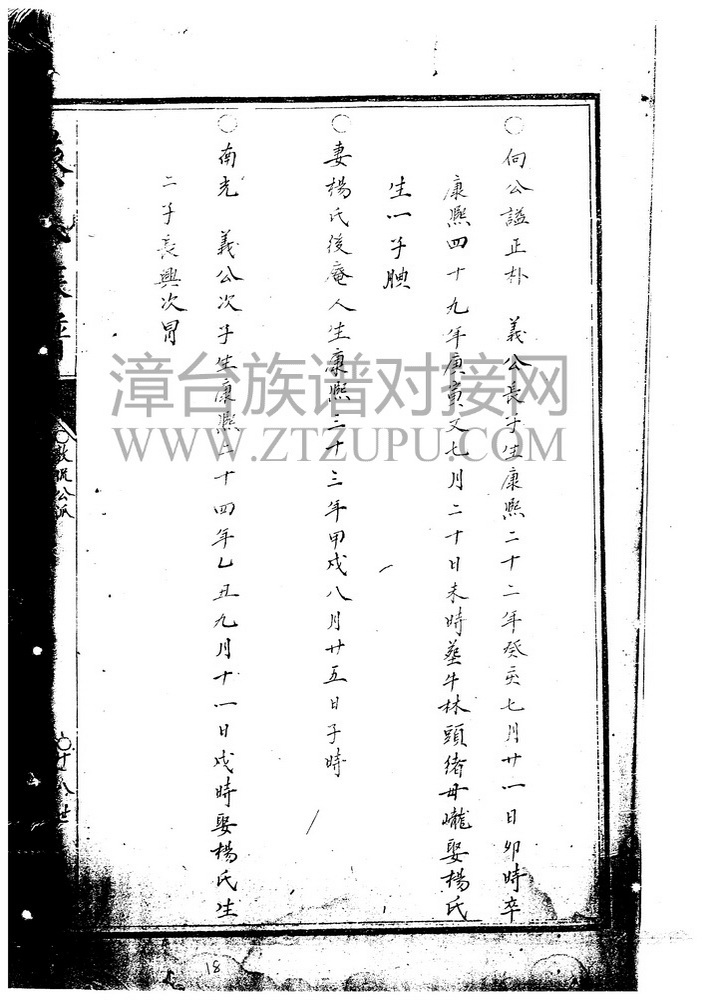 ○向公謚正朴 義公長子生康熙二十二年癸亥七月廿一日卯時卒
康熙四十九年庚寅又七月二十日未時塟牛林頭猪母巄娶楊氏
生一子腆
○妻楊氏後庵人生康熙三十三年甲戌八月廿五日子時
○南光 義公次子生康熙二十四年乙丑九月十一日戌時娶楊氏生
二子長興次冐
○十八世
漳台族谱对接网
WWW.ZTZUPU.COM
18